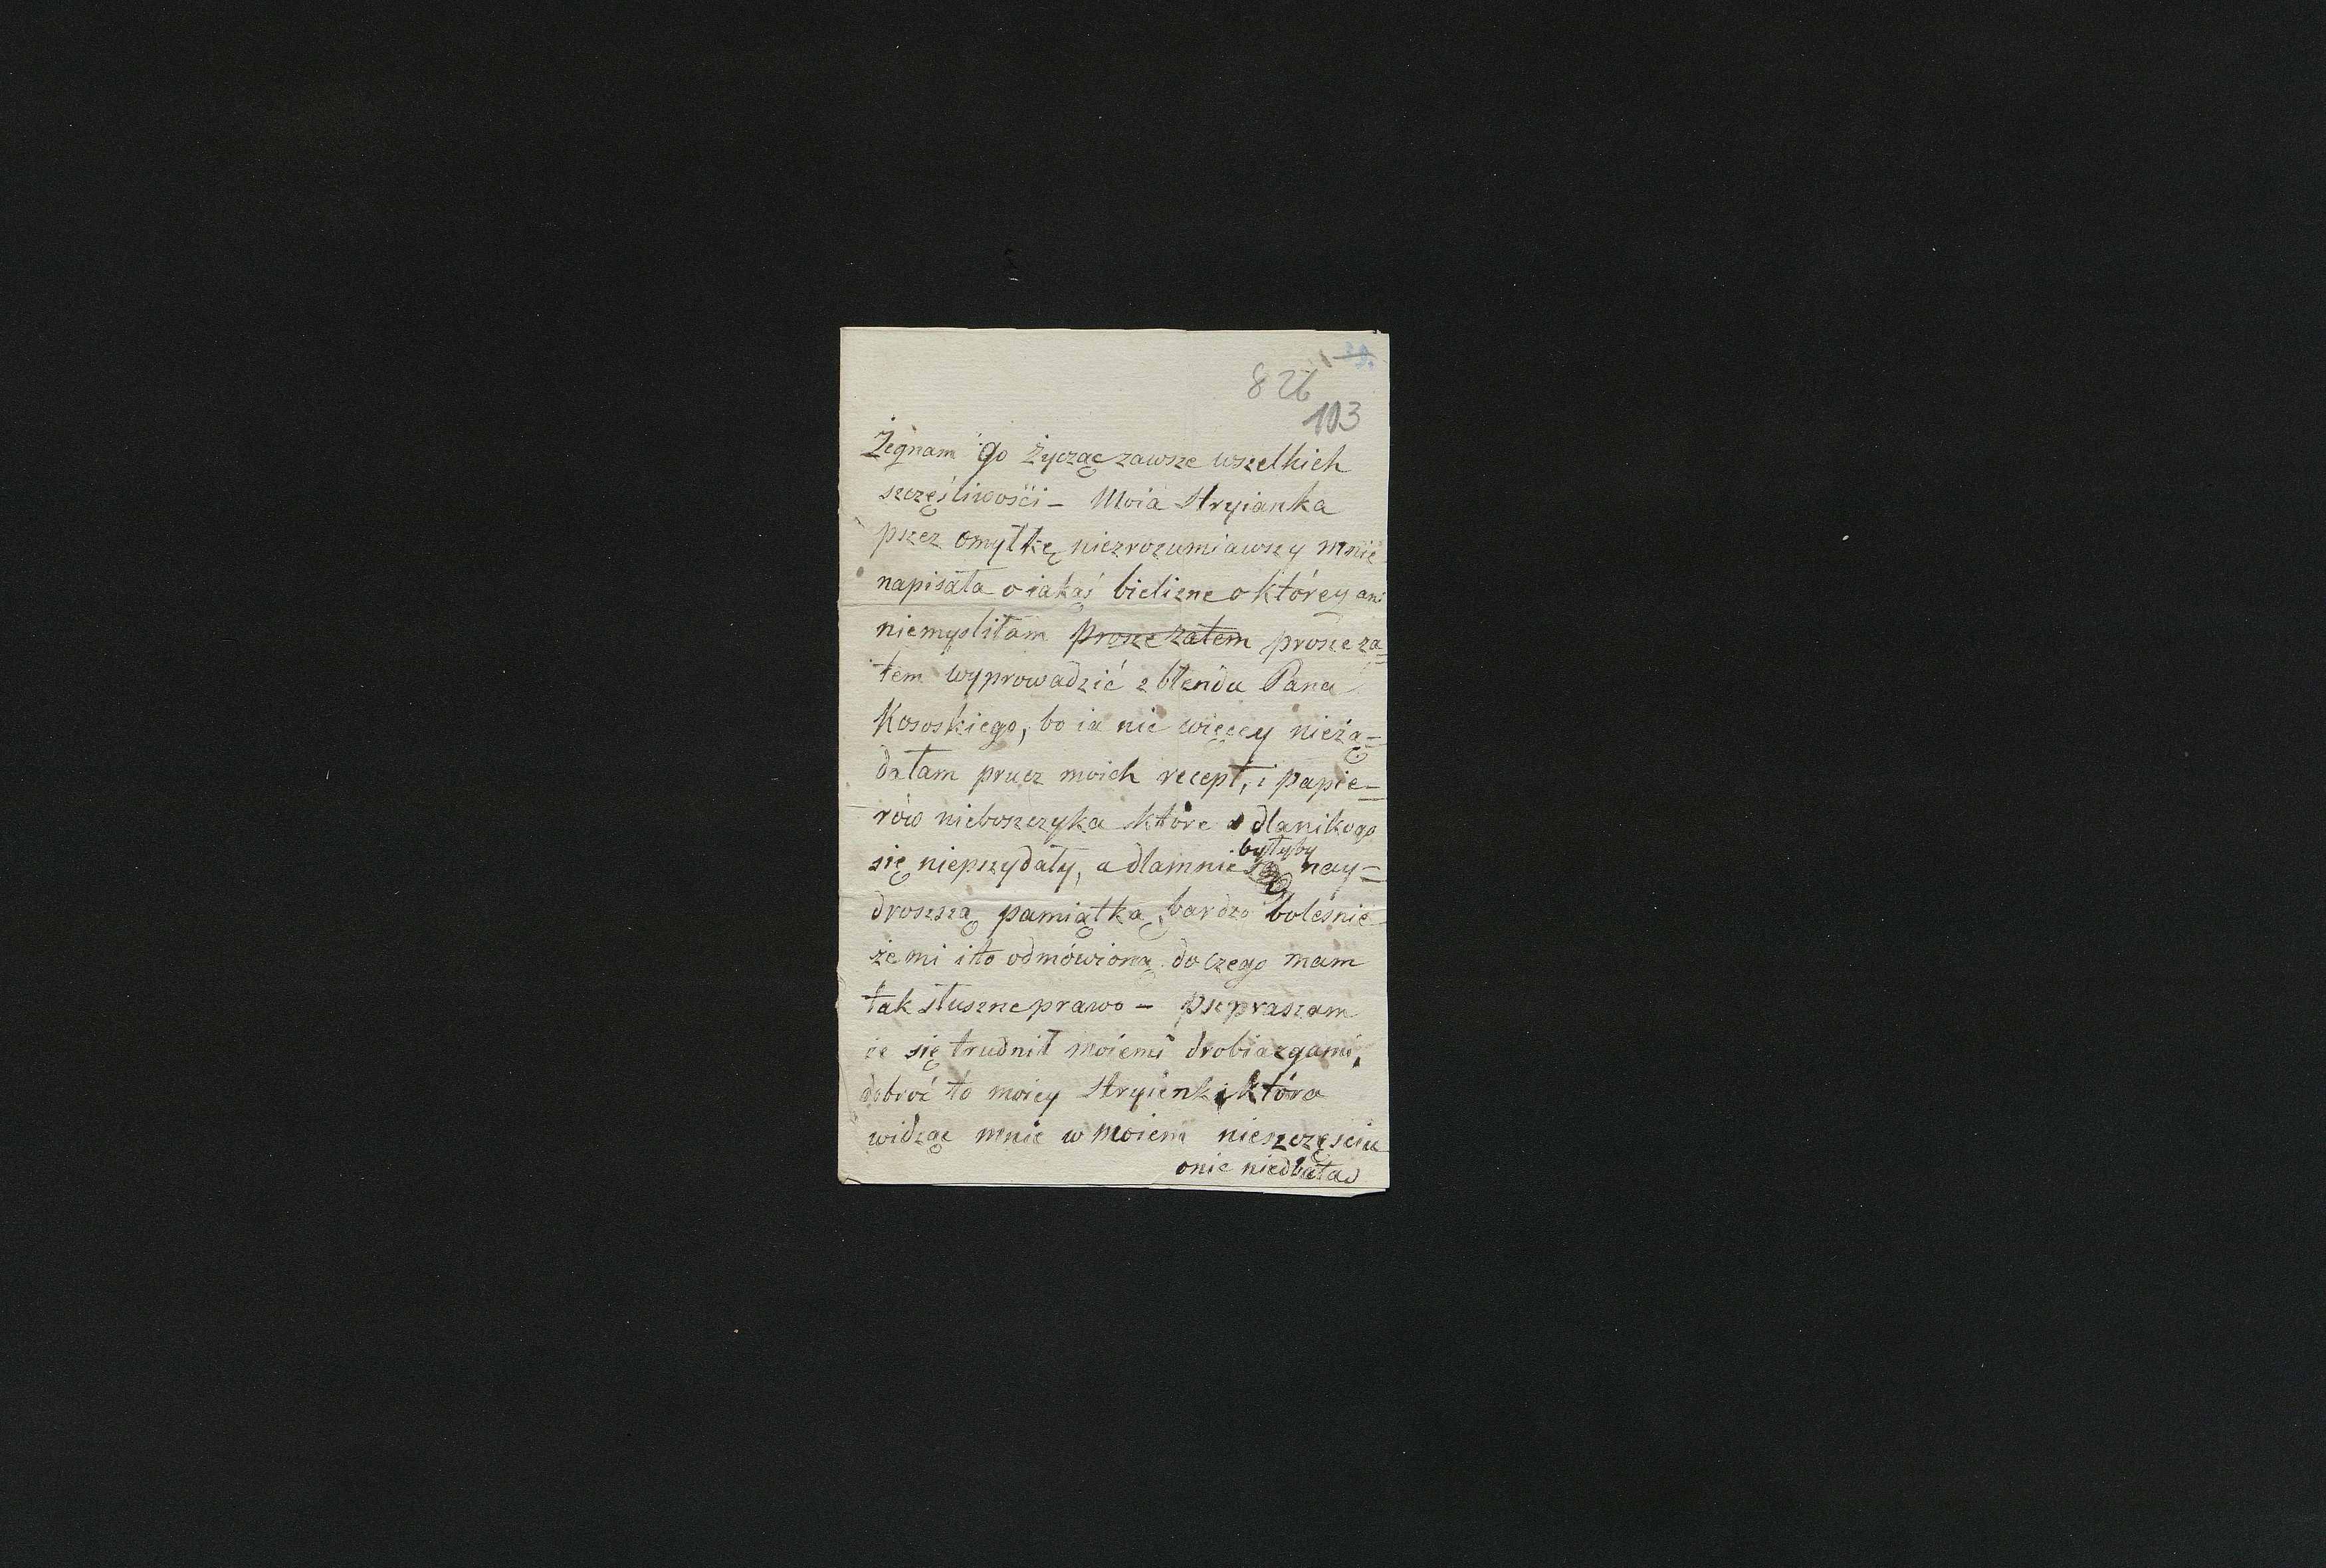 826
103
Żegnam go życząc zawsze wszelkich
szczęśliwości – Moia Stryianka
pszez omyłkę niezrozumiawszy mnie
napisała o iakąś bielizne o którey ani
niemysliłam prosze zatem prosze za=
tem wyprowadzić z błendu Pana
Kososkiego, bo ia nic więcey nieżą=
dałam prucz moich recept, i papie=
rów nieboszczyka które dlanikogo
się niepszydały, a dlamnie byłyby nay=
droszszą pamiątką, bardzo boleśnie
że mi i to odmówioną do czego mam
tak słuszne prawo – pszpraszam
że się trudnił moiemi drobiazgami,
dobroć to moiey Stryienki która
widząc mnie w moiem nieszczęsciu
onic niedbała